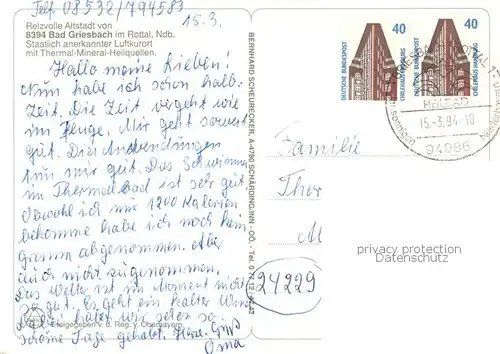 Telf. 08532/794583
15.3.
Reizvolle Altstadt von
8394 Bad Griesbach im Rottal, Ndb.
Staatlich anerkannter Luftkurort
mit Thermal-Mineral-Heilquellen.
Hallo meine Lieben!
Nun habe ich schon halb-
Zeit. Die Zeit vergeht wie
im Fluge. Mir geht soweit
gut. Die Anwendungen
tun mir gut. Das Schwimmen
im Thermalbad ist sehr gut.
Obwohl ich nur 1200 Kalorien
bekomme habe ich noch kein
Gramm abgenommen. Aber
auch nicht zugenommen.
Das Wetter ist im Moment nicht
so gut. Es geht ein kalter Wind
Dabei hatten wir schon so
schöne Tage gehabt. Herzl. Grüß
Oma
Freigegeben v. d. Reg. v. Oberbayern
BERNHARD SCHEURECKER, A-4780 SCHÄRDING/INN - OÖ. - Tel. 0 77 12
40
40
DEUTSCHE BUNDESPOST
CHILEHAUS HAMBURG
DEUTSCHE BUNDESPOST
CHILEHAUS
HEILBAD
15.-3.94-10
94086
sonnigen
Niederbayern
Familie
Ther
M
24229
privacy protection
Datenschutz